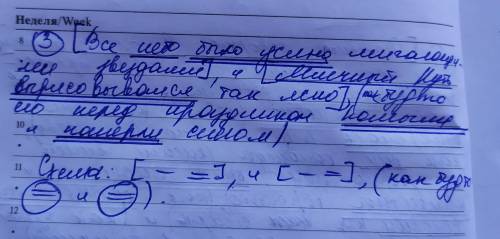 Неделя/Week
8 ③ [Все небо было усеяно мигающи-
ми звездами], и [Млечный Путь
вырисовывался так ясно], (как будто
его перед праздником помыли
10 и натерли снегом).
11 Схема: [ – = ], и [ – = ], (как будто
12 = и = ).